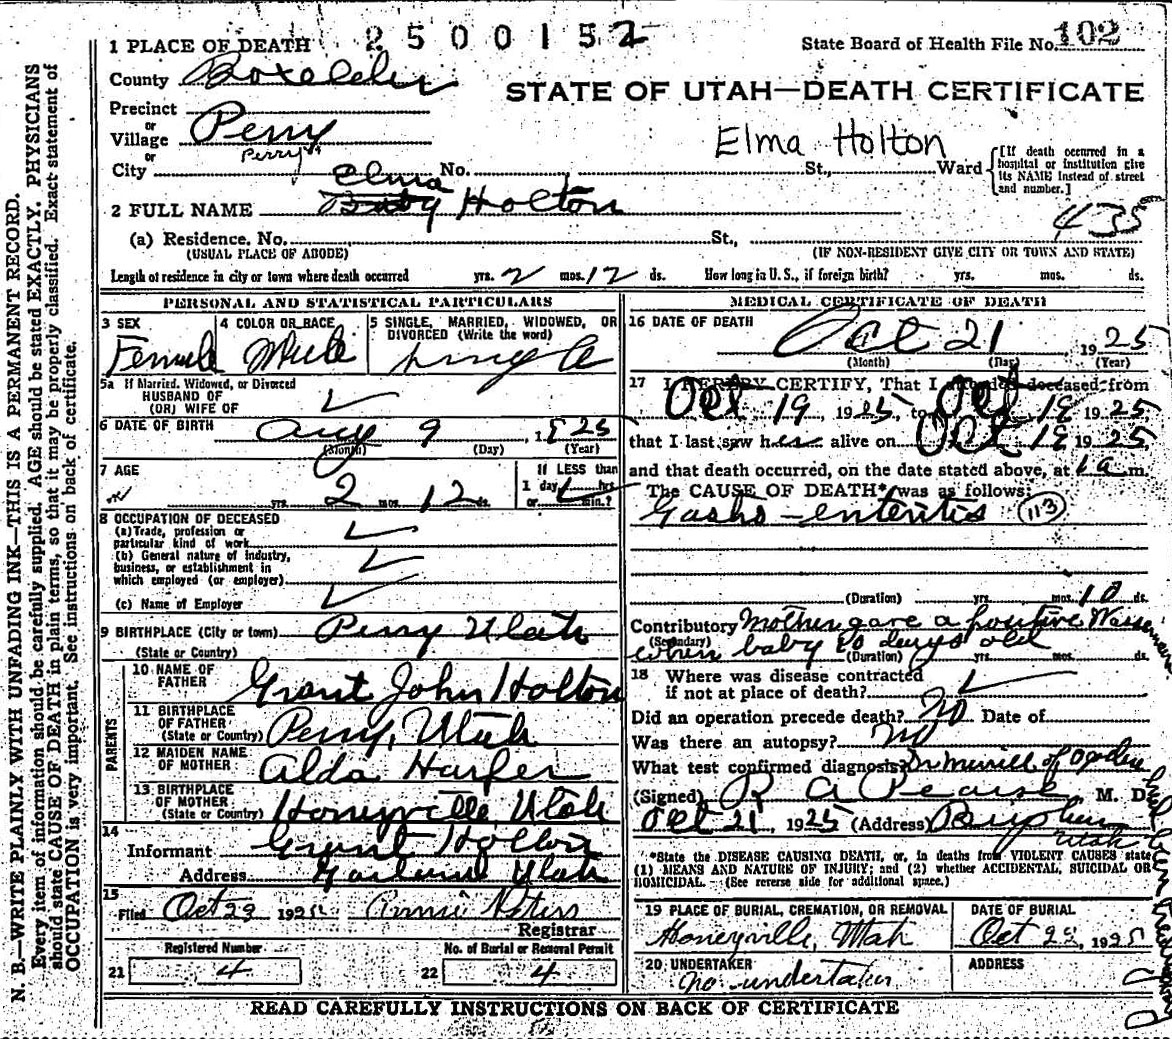 2500152
1 PLACE OF DEATH
State Board of Health File No. 102
County Boxelder
STATE OF UTAH—DEATH CERTIFICATE
Precinct
or
Village Perry
Perry
or
Elma Holton
City No. St., Ward
[If death occurred in a hospital or institution give its NAME instead of street and number.]
2 FULL NAME Elma Baby Holton
435
(a) Residence. No. St.,
(USUAL PLACE OF ABODE) (IF NON-RESIDENT GIVE CITY OR TOWN AND STATE)
Length of residence in city or town where death occurred yrs. 2 mos. 12 ds. How long in U. S., if foreign birth? yrs. mos. ds.
PERSONAL AND STATISTICAL PARTICULARS
3 SEX Female
4 COLOR OR RACE White
5 SINGLE, MARRIED, WIDOWED, OR DIVORCED (Write the word) Single
5a If Married, Widowed, or Divorced
HUSBAND OF
(OR) WIFE OF
6 DATE OF BIRTH Aug 9, 1925
(Month) (Day) (Year)
7 AGE
If LESS than
1 day hrs
yrs 2 mos 12 ds. or min.?
8 OCCUPATION OF DECEASED
(a) Trade, profession or
particular kind of work
(b) General nature of industry,
business, or establishment in
which employed (or employer)
(c) Name of Employer
9 BIRTHPLACE (City or town) Perry Utah
(State or Country)
PARENTS
10 NAME OF FATHER Grant John Holton
11 BIRTHPLACE OF FATHER (State or Country) Perry, Utah
12 MAIDEN NAME OF MOTHER Alda Harper
13 BIRTHPLACE OF MOTHER (State or Country) Honeyville, Utah
14
Informant Grant Holton
Address Garland Utah
15
Filed Oct 23 1925 Annie
Registrar
Registered Number
No. of Burial or Removal Permit
21 4
22 4
MEDICAL CERTIFICATE OF DEATH
16 DATE OF DEATH Oct 21 1925
(Month) (Day) (Year)
17 I HEREBY CERTIFY, That I attended deceased from
Oct 19 1925, to Oct 19 1925
that I last saw her alive on Oct 19 1925
and that death occurred, on the date stated above, at 1 a m.
The CAUSE OF DEATH* was as follows:
Gastro-enteritis (113)
(Duration) yrs. mos. 10 ds.
Contributory Mother gave a positive Wasserman
(Secondary)
when baby 20 days old
(Duration) yrs. mos. ds.
18 Where was disease contracted
if not at place of death?
Did an operation precede death? No Date of
Was there an autopsy? No
What test confirmed diagnosis? Dr Merrill of Ogden
(Signed) R A Pearse M. D.
Oct 21, 1925 (Address) Brigham
Utah
*State the DISEASE CAUSING DEATH, or, in deaths from VIOLENT CAUSES state
(1) MEANS AND NATURE OF INJURY; and (2) whether ACCIDENTAL, SUICIDAL OR
HOMICIDAL. (See reverse side for additional space.)
19 PLACE OF BURIAL, CREMATION, OR REMOVAL
Honeyville, Utah
DATE OF BURIAL
Oct 22, 1925
20 UNDERTAKER
No undertaker
ADDRESS
READ CAREFULLY INSTRUCTIONS ON BACK OF CERTIFICATE
N. B.—WRITE PLAINLY WITH UNFADING INK—THIS IS A PERMANENT RECORD.
Every item of information should be carefully supplied. AGE should be stated EXACTLY. PHYSICIANS
should state CAUSE OF DEATH in plain terms, so that it may be properly classified. Exact statement of
OCCUPATION is very important. See instructions on back of certificate.